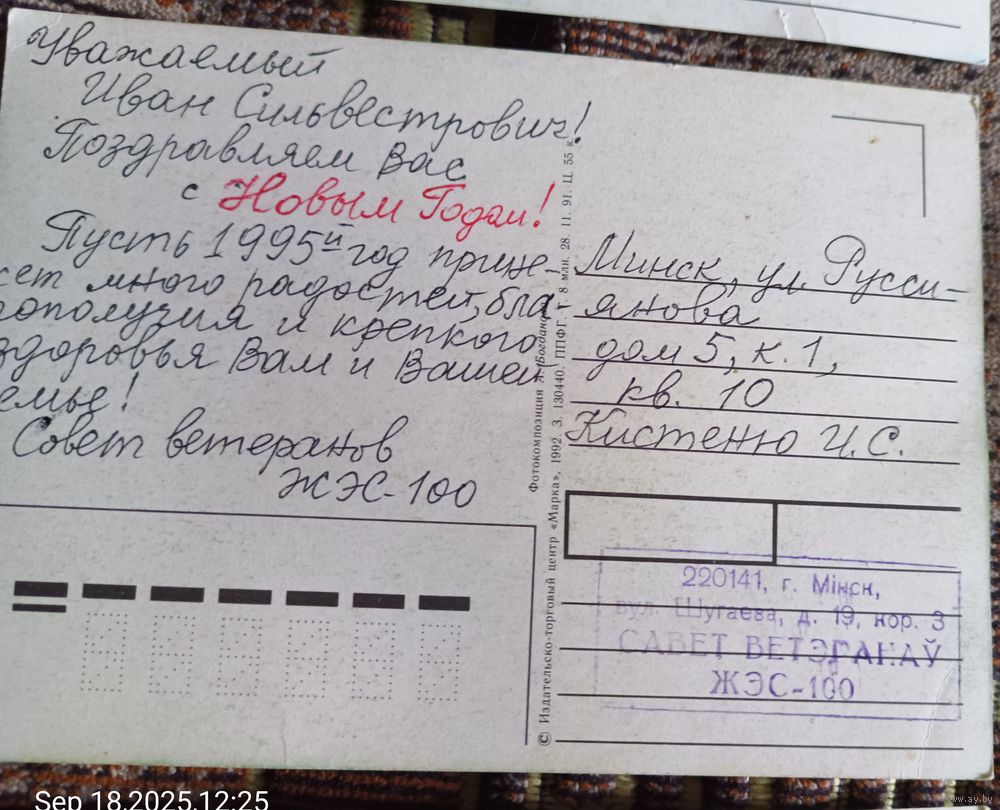 Уважаемый
Иван Сильвестрович!
Поздравляем Вас
с Новым Годом!
Пусть 1995й год прине-
сет много радостей, бла-
гополучия и крепкого
здоровья Вам и Вашей
емье!
Совет ветеранов
ЖЭС-100
Фотокомпозиция Л. Богдано
© Издательско-торговый центр «Марка». 1992. З. 130440. ППФГ. Т. 8 млн. 28. 11. 91. Ц. 55 к.
Минск, ул. Русси-
янова
дом 5, к. 1,
кв. 10
Кистеню И.С.
220141, г. Мінск,
вул. Шугаева, д. 19, кор. 3
САВЕТ ВЕТЭРАНАЎ
ЖЭС-100
Sep 18,2025,12:25
www.ay.by